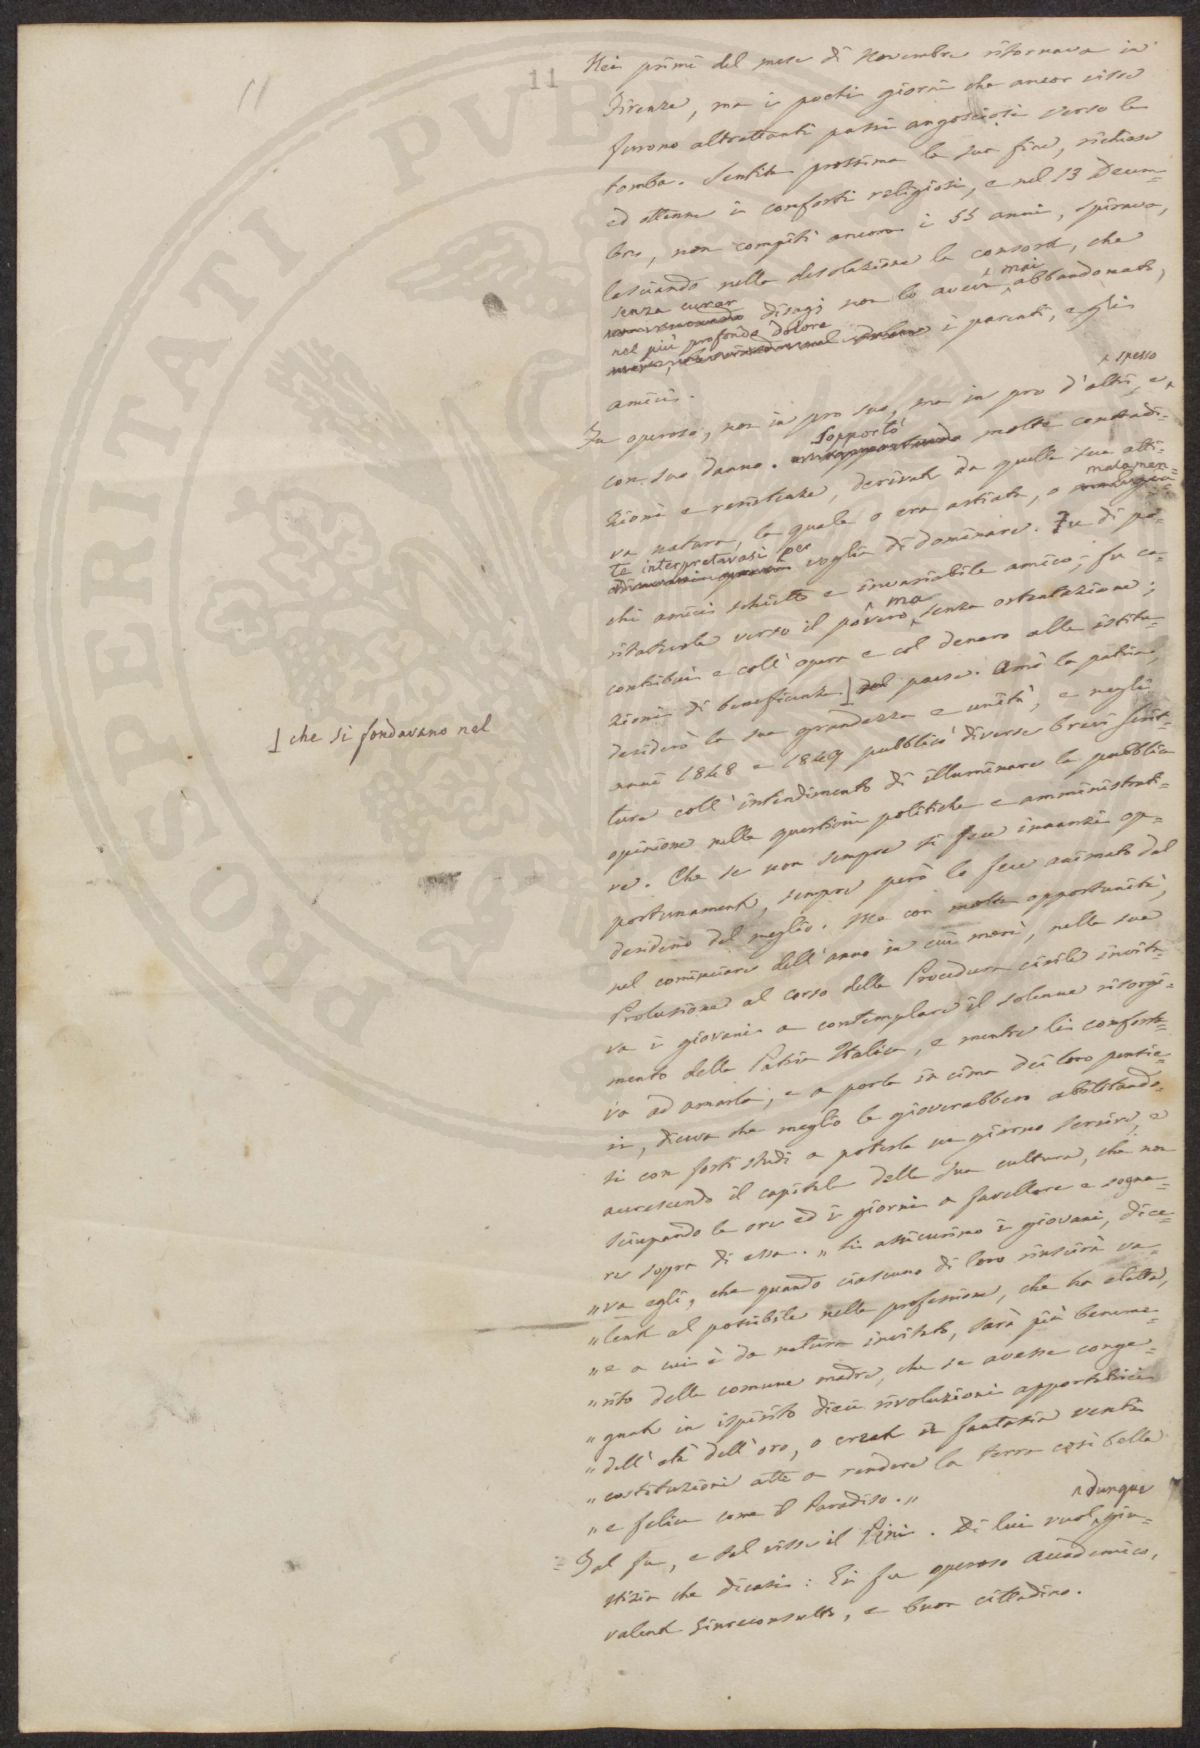 11
11
Nei primi del mese di Novembre ritornava in
Firenze, ma i pochi giorni che ancor visse
furono altrettanti passi angosciosi verso la
tomba. Sentita prossima la sua fine, richiese
ed ottenne i conforti religiosi, e nel 13 Decem=
bre, non compiti ancora i 55 anni, spirava,
lasciando nella desolazione la consorte, che
senza curar disagj non lo aveva ^ mai abbandonato,
nel più profondo dolore i parenti, e gli
amici.
Fu operoso, non in pro suo, ma in pro d'altri, e ^ spesso
con suo danno. Sopportò molte contradi=
zioni e resistenze, derivate da quella sua atti=
va natura, la quale o era astiata, o malamen=
te interpretavasi per voglia di dominare. Fu di po=
chi amici schietto e invariabile amico; fu ca=
ritatevole verso il povero, ^ ma senza ostentazione;
contribuì e coll'opera e col denaro alle istitu=
zioni di beneficenza ⊥ del paese. Amò la patria,
⊥ che si fondavano nel
desiderò la sua grandezza e unità, e negli
anni 1848 e 1849 pubblicò diverse brevi scrit=
ture coll'intendimento di illuminare la pubblica
opinione nelle questioni politiche e amministrati=
ve. Che se non sempre si fece innanzi op=
portunamente, sempre però lo fece animato dal
desiderio del meglio. Ma con molta opportunità,
nel cominciare dell'anno in cui morì, nella sua
Prolusione al corso della Procedura civile invita=
va i giovani a contemplare il solenne risorgi=
mento della Patria Italica, e mentre li conforta=
va ad amarla, e a porla in cima dei loro pensie=
ri, diceva che meglio le gioverebbero abilitando=
si con forti studi a poterla un giorno servire, e
accrescendo il capitale della sua cultura, che non
sciupando le ore ed i giorni a favellare e sogna=
re sopra di essa. „ Si assicurino i giovani, dice=
„ va egli, che quando ciascuno di loro riuscirà va=
„ lente al possibile nella professione, che ha eletta,
„ e a cui è da natura invitato, sarà più beneme=
„ rito della comune madre, che se avesse conge=
„ gnate in ispirito dieci rivoluzioni apportatrici
„ dell'età dell'oro, o create in fantasia venti
„ costituzioni atte a rendere la terra così bella
„ e felice come il Paradiso. „
Tal fu, e tal visse il Pini. Di lui vuol ^ dunque giu=
stizia che dicasi: Ei fu operoso Accademico,
valente Giureconsulto, e buon cittadino.
PROSPERITATI PVBL